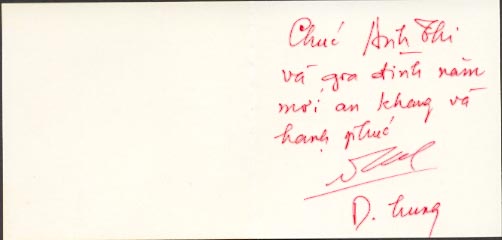 Chúc Anh Thi
và gia đình năm
mới an khang và
hạnh phúc
D. Trung